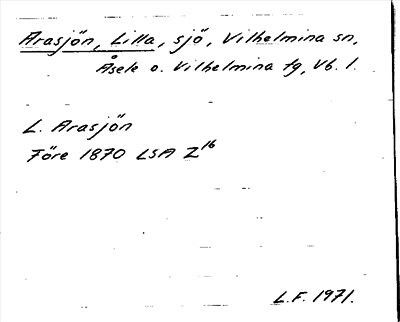 Arasjön, Lilla, sjö, Vilhelmina sn,
Åsele o. Vilhelmina tg, Vb. l.
L. Arasjön
Före 1870 LSA Z16
L.F. 1971.